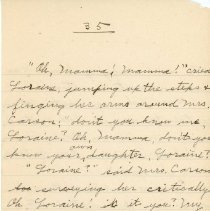 35
"Oh, Mamma! Mamma!" cried
Loraine, jumping up the steps &
flinging her arms around Mrs.
Carson, "don't you know me,
Loraine? Oh, Mamma, don't you
know your own daughter, Loraine?
"Loraine?" said Mrs. Carson
surveying her critically.
Oh, Loraine! is it you? My